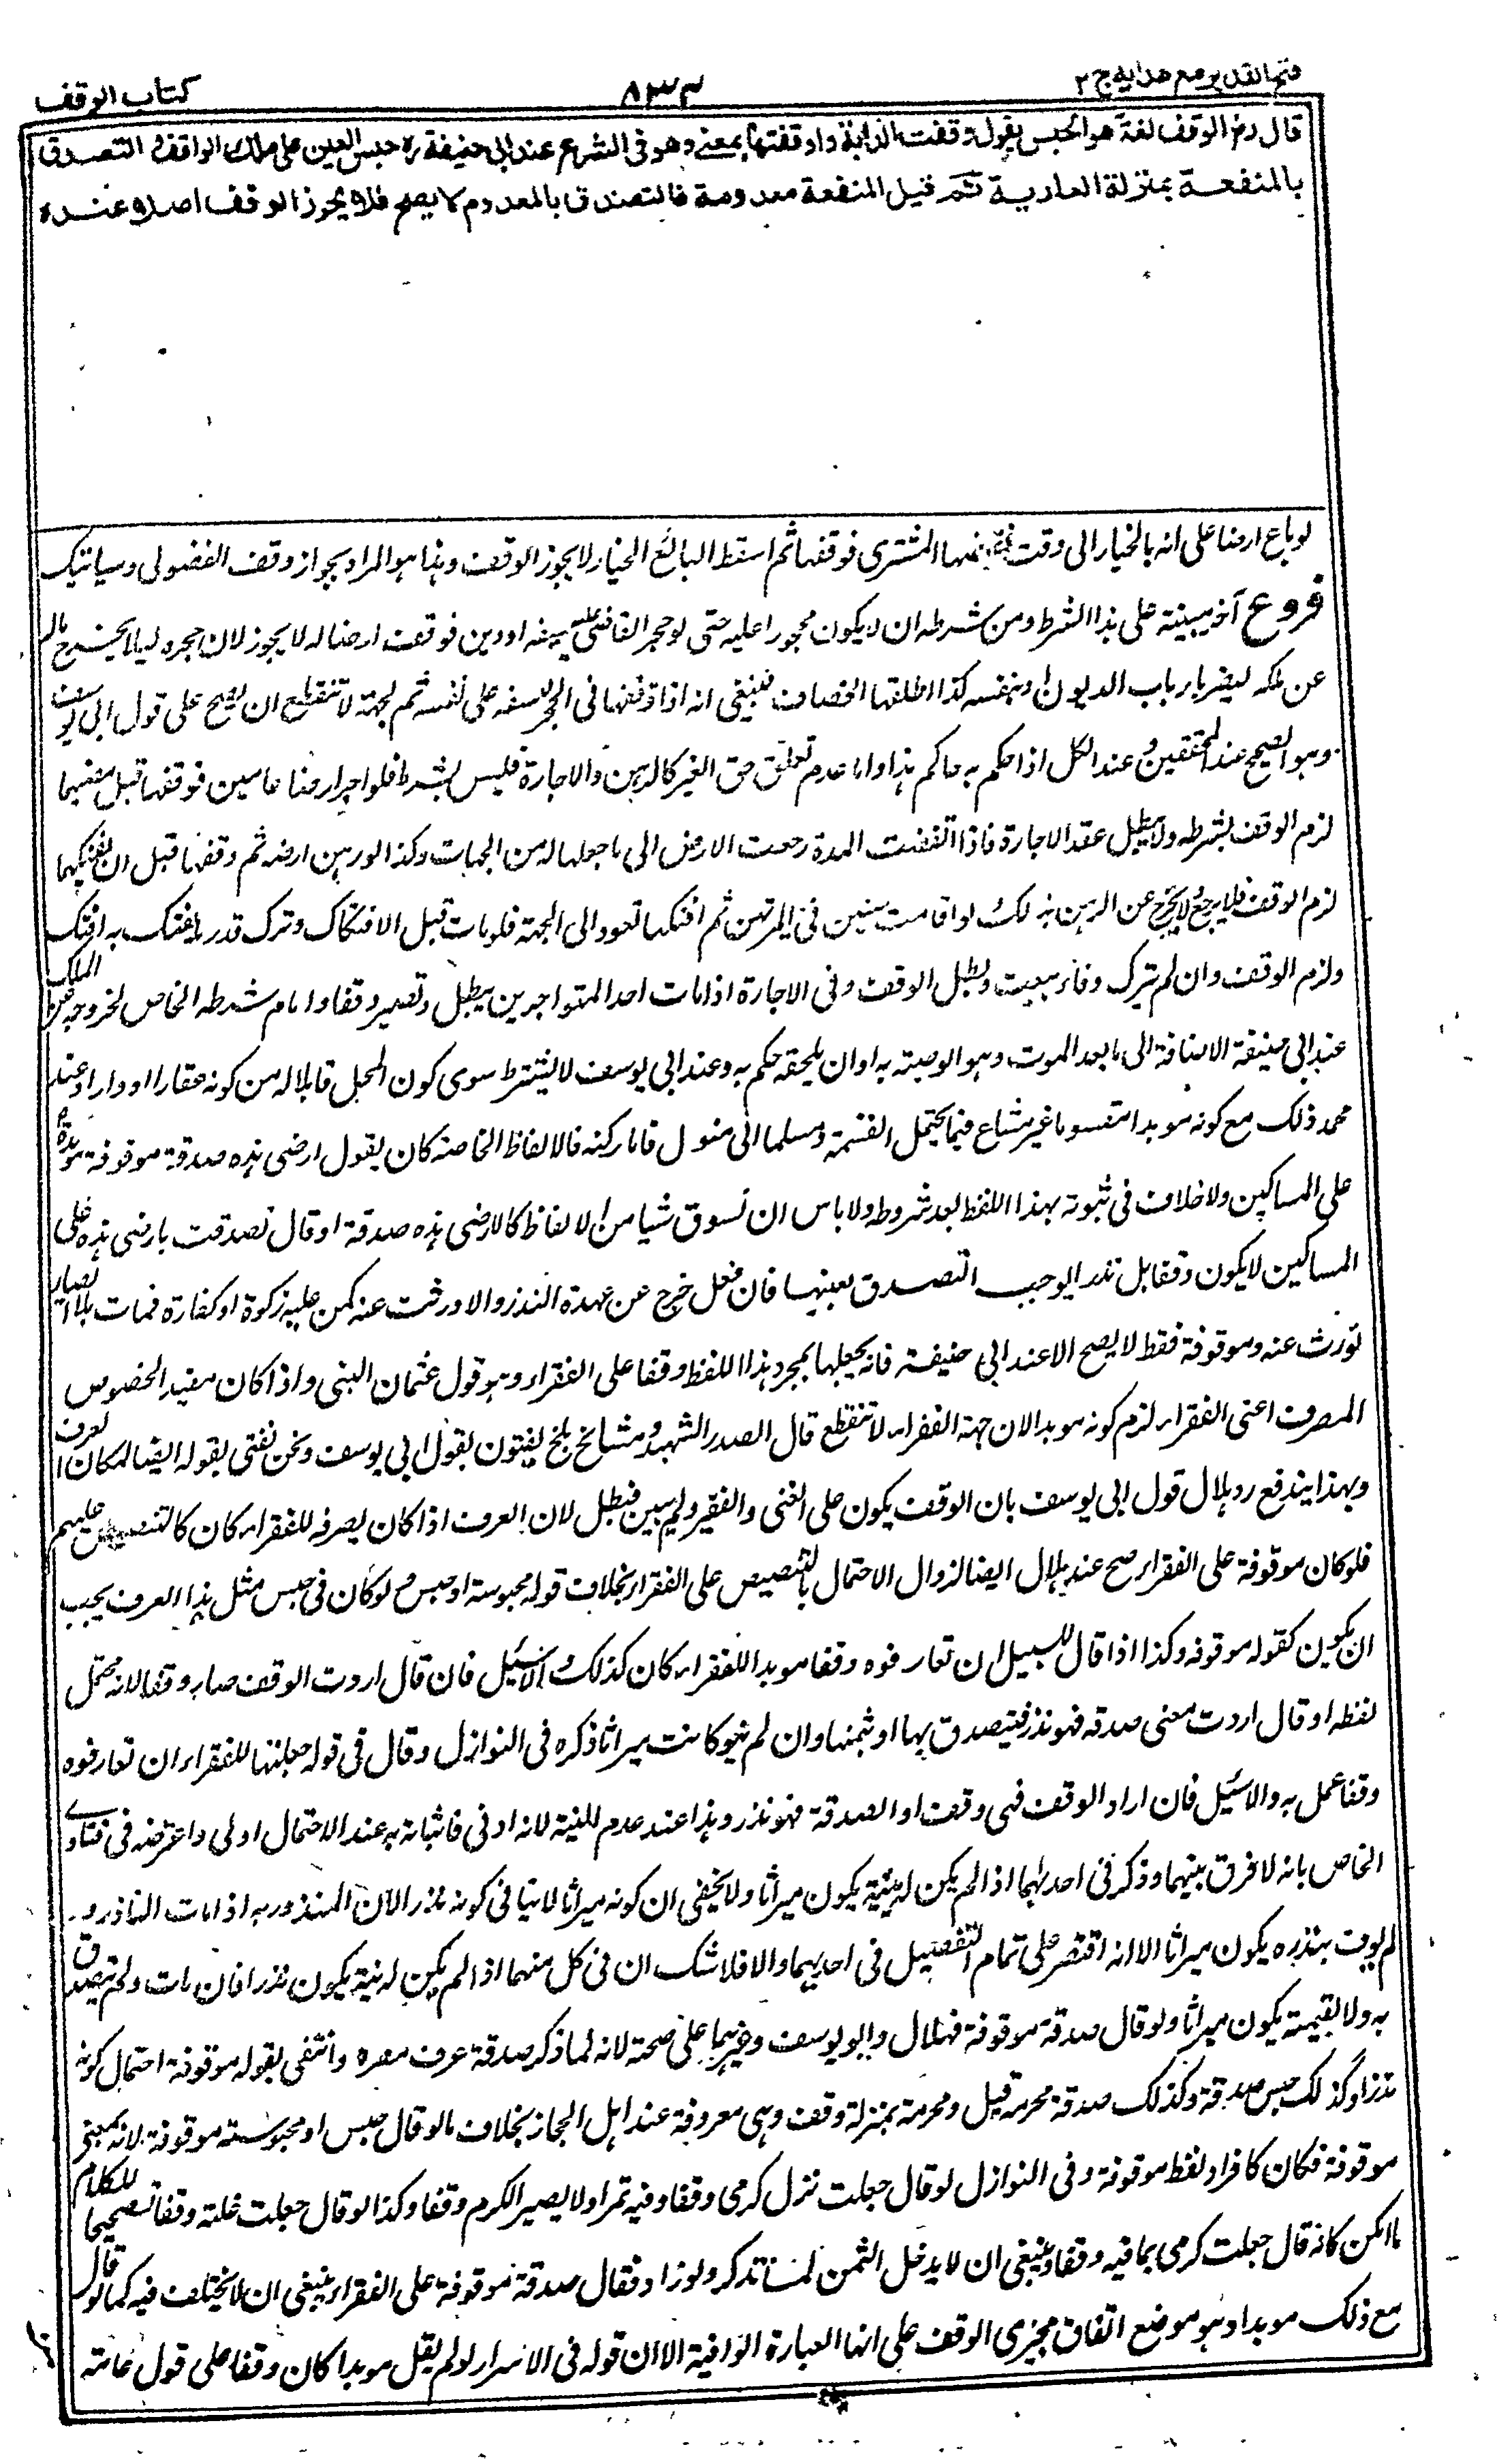 فتح القدير مع هدايه ج ٢
٨٣٣
كتاب الوقف
قال رض الوقف لغة هو الحبس يقول وقفت الدابة واوقفتها بمعنى وهو فى الشرع عند ابى حنيفة ره حبس العين على ملك الواقف و التصدق
بالمنفعة بمنزلة العارية ثم قيل المنفعة معدومة فالتصدق بالمعدوم لا يصح فلا يجوز الوقف اصلا عنده
لو باع ارضا على انه بالخيار الى وقت المشترى فوقفها ثم اسقط البائع الخيار لا يجوز الوقف وهذا هو المراد بجواز وقف الفضولى وسياتيك
فروع اخر مبينة على هذا الشرط ومن شرطه ان لا يكون محجورا عليه حتى لو حجر القاضى عليه لسفه او دين فوقف ارضا له لا يجوز لان حجره ليلا يخرج ماله
عن ملكه ليضر بارباب الديون او بنفسه كذا اطلقها الخصاف فينبغى انه اذا وقفها فى الحجر للسفه على نفسه ثم لجهة لا تنقطع ان يصح على قول ابى يوسف
وهو الصحيح عند المحققين و عند الكل اذا حكم به حاكم هذا واما عدم تعلق حق الغير كالرهن والاجارة فليس بشرط فلو اجر ارضا عامين فوقفها قبل مضيهما
لزم الوقف بشرطه ولا يبطل عقد الاجارة فاذا انقضت المدة رجعت الارض الى ما جعلها له من الجهات وكذا لو رهن ارضه ثم وقفها قبل ان يفتكها
لزم الوقف فلا يرجع ولا يخرج عن الرهن بذلك لو اقامت سنين فى يد المرتهن ثم افتكها تعود الى الجهة فلو مات قبل الافتكاك وترك قدر ما يفتك به افتك
ولزم الوقف وان لم يترك وفاء بيعت وبطل الوقف وفى الاجارة اذا مات احد المتواجرين يبطل وتصير وقفا واما شرطه الخاص لخروجه عن الملك
عند ابى حنيفة الاضافة الى ما بعد الموت وهو الوصية به او ان يلحقه حكم به وعند ابى يوسف لا يشترط سوى كون المحل قابلا له من كونه عقارا او دارا وعند
محمد ذلك مع كونه موبدا مقسوما غير مشاع فيما يحتمل القسمة ومسلما الى متول فاما ركنه فالالفاظ الخاصة كان يقول ارضى هذه صدقة موقوفة موبدة
على المساكين ولا خلاف فى ثبوته بهذا اللفظ بعد شروط ولا باس ان نسوق شيا من الالفاظ كالارضى هذه صدقة او قال تصدقت بارضى هذه على
المساكين لا يكون وقفا بل نذرا يوجب التصدق بعينها فان فعل خرج عن عهدة النذر والا ورثت عنه كمن عليه زكوة او كفارة فمات بلا ايصاء
تورث عنه وموقوفة فقط لا يصح الا عند ابى حنيفة فانه يجعلها بمجرد هذا اللفظ وقفا على الفقراء وهو قول عثمان البتى واذا كان مفيد الخصوص
المصرف اعنى الفقراء لزم كونه موبدا لان جهة الفقراء لا تنقطع قال الصدر الشهيد ومشائخ بلخ يفتون بقول ابى يوسف ونحن نفتى بقوله ايضا لمكان العرف
وبهذا يندفع رد هلال قول ابى يوسف بان الوقف يكون على الغنى والفقير ولم يبين فبطل لان العرف اذا كان يصرفه للفقراء كان كالتنصيص عليهم
فلو كان موقوفة على الفقراء صح عند هلال ايضا لزوال الاحتمال بالتنصيص على الفقراء بخلاف قوله محبوسة او حبس ولو كان فى حبس مثل هذا العرف يجب
ان يكون كقوله موقوفه وكذا اذا قال للسبيل ان تعارفوه وقفا موبدا للفقراء كان كذلك والا سئيل فان قال اردت الوقف صار وقفا لانه محتمل
لفظه او قال اردت معنى صدقه فهو نذر فيتصدق بها او بثمنها وان لم ينو كانت ميراثا ذكره فى النوازل وقال فى قوله جعلتها للفقراء ان تعارفوه
وقفا عمل به والا سئيل فان اراد الوقف فهى وقف او الصدقة فهو نذر وهذا عند عدم النية لانه ادنى فاثباته به عند الاحتمال اولى واعترضه فى فتاوے
الخاص بانه لا فرق بينهما وذكر فى احدهما اذا لم يكن له نية يكون ميراثا ولا يخفى ان كونه ميراثا لا ينافى كونه نذرا لان المنذور به اذا مات الناذر و
لم يوف بنذره يكون ميراثا الا انه اقتصر على تمام التفصيل فى احدهما والا فلا شك ان فى كل منهما اذا لم يكن له نية يكون نذرا فان مات ولم يتصدق
به ولا بقيمته يكون ميراثا ولو قال صدقة موقوفة فهلال وابو يوسف وغيرهما على صحته لانه لما ذكر صدقة عرف مصرفه وانتفى بقوله موقوفة احتمال كونه
نذرا وكذلك حبس صدقة وكذلك صدقة محرمة قيل ومحرمة بمنزلة وقف وهى معروفة عند اهل الحجاز بخلاف ما لو قال حبس او محبوسة موقوفة لانه بمعنى
موقوفة فكان كافراد لفظ موقوفة وفى النوازل لو قال جعلت نزل كرمى وقفا وفيه ثمر اولا يصير الكرم وقفا وكذا لو قال جعلت غلته وقفا تصحيحا للكلام
ما امكن كانه قال جعلت كرمى بما فيه وقفا وينبغى ان لا يدخل الثمن لما تذكر ولو زاد فقال صدقة موقوفة على الفقراء ينبغى ان لا يختلف فيه كما لو قال
مع ذلك موبدا وهو موضع اتفاق مجيزى الوقف على انها العبارة الوافية الا ان قوله فى الاسرار لو لم يقل موبدا كان وقفا على قول عامة